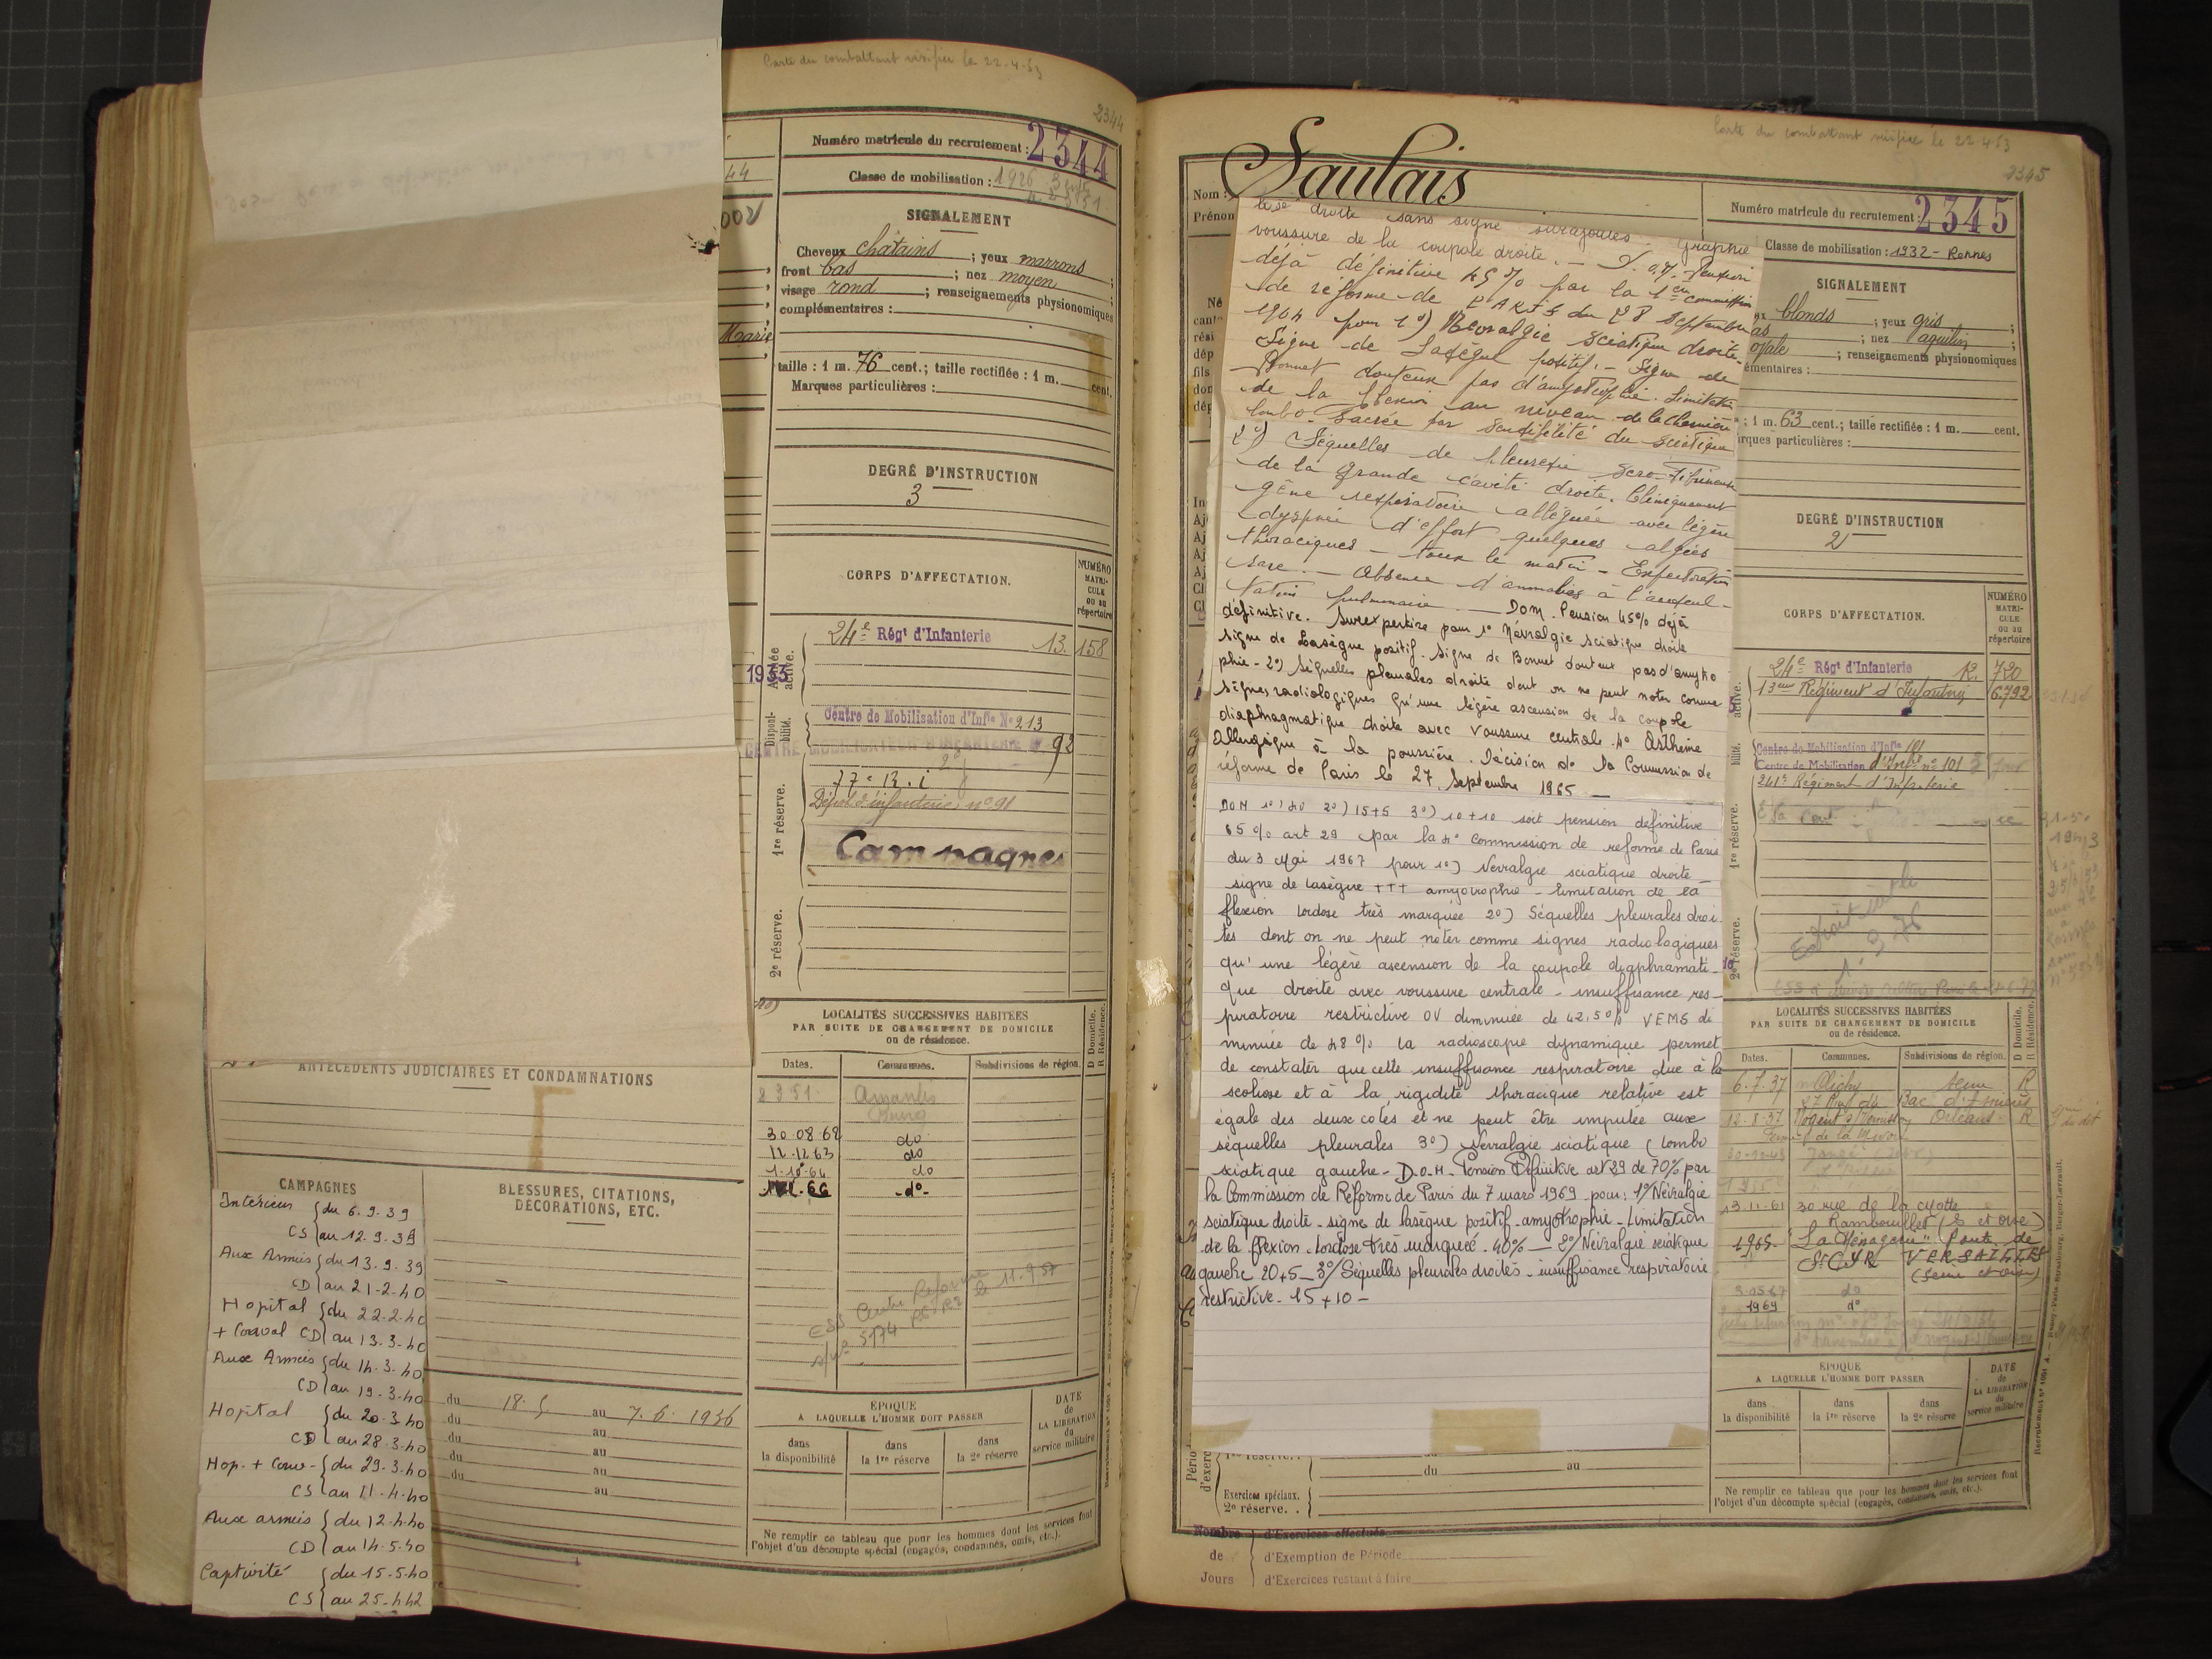 Carte du combattant vérifiée le 22-4-53
2344
Numéro matricule du recrutement : 2344
Classe de mobilisation : 1926
SIGNALEMENT
Cheveux chatains ; yeux marrons ;
front bas ; nez moyen ;
visage rond ; renseignements physionomiques
complémentaires :
Marie
taille : 1 m. 76 cent.; taille rectifiée : 1 m. cent.
Marques particulières :
DEGRÉ D'INSTRUCTION
3
CORPS D'AFFECTATION.
NUMÉRO MATRI-CULE ou au répertoire
24e Régt d'Infanterie 13. 158
1933
Armée active.
Disponi-bilité.
Centre de Mobilisation d'Infie No 213
CENTRE MOBILISATEUR D'INFANTERIE 92
1re réserve.
Dépôt d'infanterie no 91
Campagnes
2e réserve.
LOCALITÉS SUCCESSIVES HABITÉES
PAR SUITE DE CHANGEMENT DE DOMICILE
ou de résidence.
Dates. Communes. Subdivisions de région. D Domicile. R Résidence.
2 3 51 Amanlis
Bourg
30.08.62 do
12.12.63 do
1-10-64 do
66 -do-
ESS Centre Réforme
le 11.9.57
ÉPOQUE
A LAQUELLE L'HOMME DOIT PASSER
DATE de LA LIBÉRATION du service militaire
dans la disponibilité
dans la 1re réserve
dans la 2e réserve
Ne remplir ce tableau que pour les hommes dont les services font
l'objet d'un décompte spécial (engagés, condamnés, omis, etc.).
ANTÉCÉDENTS JUDICIAIRES ET CONDAMNATIONS
CAMPAGNES
BLESSURES, CITATIONS,
DÉCORATIONS, ETC.
Intérieur { du 6.9.39
CS { au 12.9.39
Aux Armées { du 13.9.39
CD { au 21-2-40
Hopital { du 22-2-40
+ Conval CD { au 13-3-40
Aux Armées { du 14-3-40
CD { au 19-3-40
Hopital { du 20-3-40
CD { au 28-3-40
Hop. + Conv- { du 29-3-40
CS { au 11-4-40
Aux armées { du 12-4-40
CD { au 14-5-40
Captivité { du 15-5-40
CS { au 25-4-42
du 18.5 au 7.6.1936
du au
du au
du au
du au
Carte du combattant vérifiée le 22-4-53
2345
Nom : Saulais
Prénom
Numéro matricule du recrutement : 2345
Classe de mobilisation : 1932 - Rennes
SIGNALEMENT
blonds ; yeux gris ;
; nez aquilin ;
ovale ; renseignements physionomiques
émentaires :
: 1 m. 63 cent.; taille rectifiée : 1 m. cent.
rques particulières :
DEGRÉ D'INSTRUCTION
2
CORPS D'AFFECTATION.
NUMÉRO MATRI-CULE ou au répertoire
24e Régt d'Infanterie R. 720
13eme Régiment d'Infanterie 6792
Centre de Mobilisation d'Infie 101
Centre de Mobilisation d'Infie no 101
241e Régiment d'Infanterie
1re réserve.
2e réserve.
droite sans signe surajoutés. graphie
voussure de la coupole droite. — Pension
déjà définitive 45 % par la 1ere Commission
de réforme de PARIS du 28 Septembre
1964 pour 1o) Nevralgie sciatique droite-
Signe de Lasègue positif. - Signe de
Bonnet douteux pas d'amyotrophie. Limitation
de la flexion au niveau de la charnière
lombo-sacrée par sensibilité du sciatique
2o) Séquelles de pleurésie sero-fibrineuse
de la grande cavité droite. Cliniquement
gêne respiratoire alléguée avec légère
dyspnée d'effort quelques algies
thoraciques - toux le matin - Expectoration
rare. - Absence d'anomalies à l'auscul-
tation pulmonaire. — DOM. Pension 45% déjà
définitive. Surexpertise pour 1o Névralgie sciatique droite
signe de Lasègue positif. Signe de Bonnet douteux pas d'amyotro
phie - 2o) Séquelles pleurales droite dont on ne peut noter comme
signes radiologiques qu'une légère ascension de la coupole
diaphragmatique droite avec voussure centrale. 4o Asthme
allergique à la poussière. Décision de la Commission de
réforme de Paris le 27 Septembre 1965 —
DOM 1o) 40 2o) 15+5 3o) 10+10 soit pension définitive
65% art 29 par la 4o Commission de reforme de Paris
du 3 Mai 1967 pour 1o) Nevralgie sciatique droite -
signe de lasègue +++ amyotrophie - limitation de la
flexion lordose très marquée 2o) Séquelles pleurales droi-
tes dont on ne peut noter comme signes radiologiques
qu'une légère ascension de la coupole diaphramati-
que droite avec voussure centrale - insuffisance res-
piratoire restrictive OV diminuée de 42,5% VEMS di
minuée de 48% la radioscopie dynamique permet
de constater que cette insuffisance respiratoire due à la
scoliose et à la rigidité thoracique relative est
égale des deux cotés et ne peut être imputée aux
séquelles pleurales 3o) Nevralgie sciatique (lombo
sciatique gauche - D.O.M. Pension Définitive art 29 de 70% par
la Commission de Réforme de Paris du 7 mars 1969 pour : 1o/ Névralgie
sciatique droite - signe de lasègue positif - amyotrophie - Limitation
de la flexion - Lordose très marquée - 40% — 2o/ Névralgie sciatique
gauche 20+5 — 3o/ Séquelles pleurales droites - insuffisance respiratoire
restrictive - 15 + 10 -
LOCALITÉS SUCCESSIVES HABITÉES
PAR SUITE DE CHANGEMENT DE DOMICILE
ou de résidence.
Dates. Communes. Subdivisions de région. D Domicile. R Résidence.
6.7.37 Clichy Seine R
12.8.37 Nogent Orléans R
13-11-61 30 rue de la
Rambouillet (S et Oise)
1965. "La Ménagerie" Route de
St CYR VERSAILLES
(Seine et Oise)
do
1969 do
ÉPOQUE
A LAQUELLE L'HOMME DOIT PASSER
DATE de LA LIBÉRATION du service militaire
dans la disponibilité
dans la 1re réserve
dans la 2e réserve
Ne remplir ce tableau que pour les hommes dont les services font
l'objet d'un décompte spécial (engagés, condamnés, omis, etc.).
du au
Exercices spéciaux.
2e réserve. .
Nombre d'Exercices effectués
de d'Exemption de Période
Jours d'Exercices restant à faire